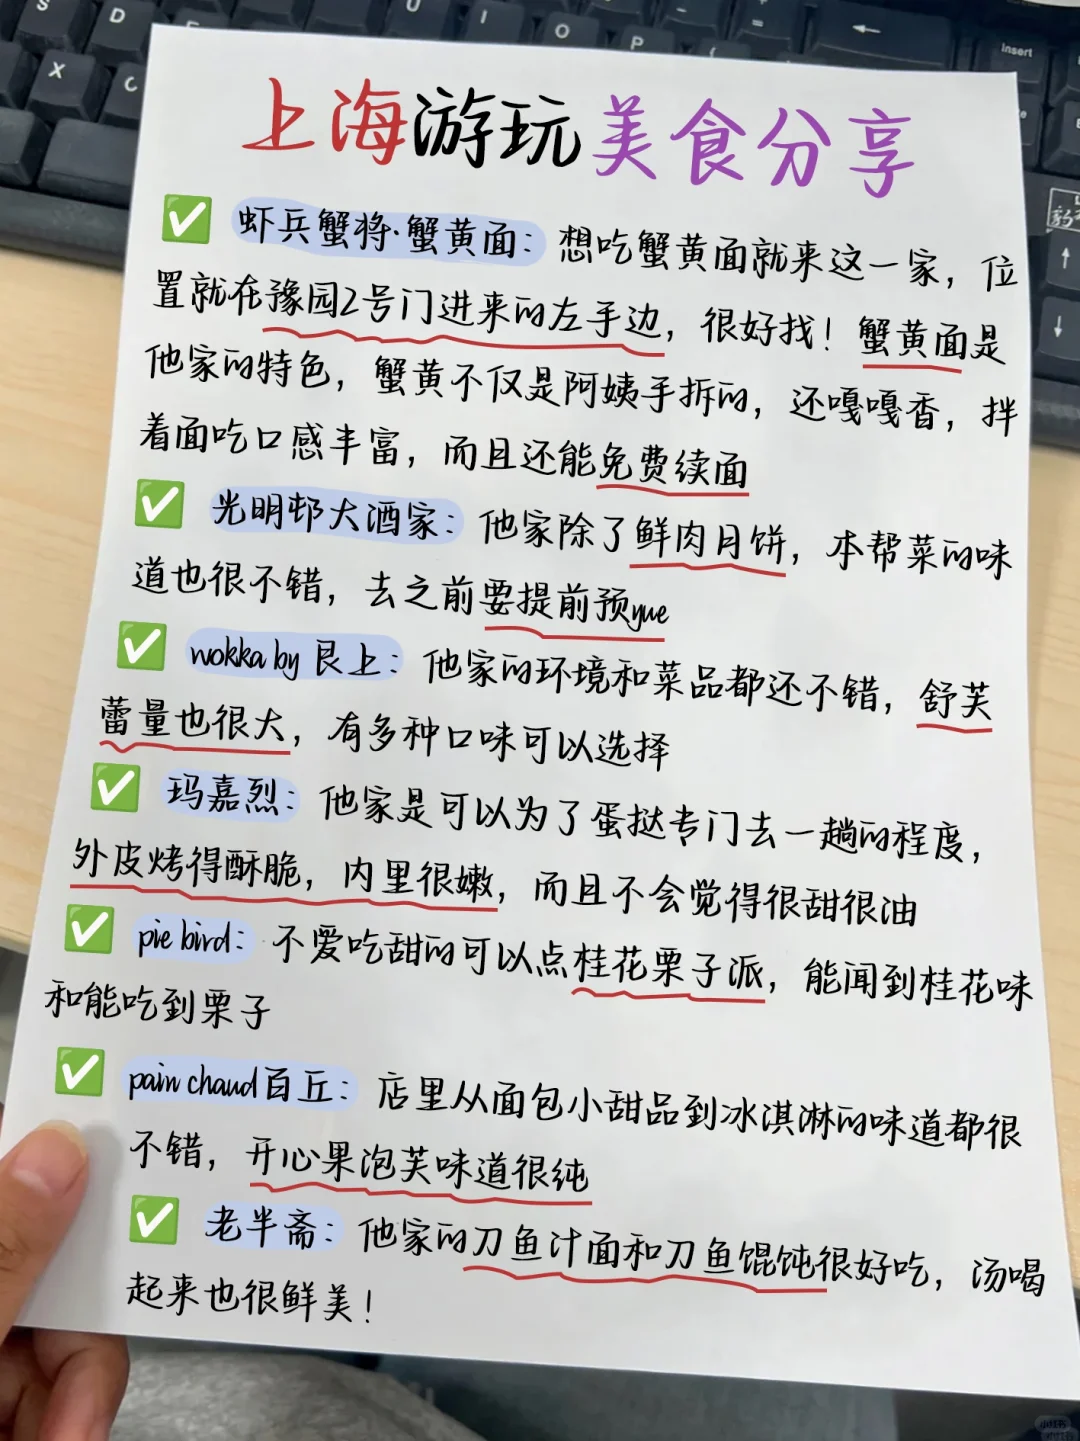 上海游玩美食分享
✅ 虾兵蟹将·蟹黄面：想吃蟹黄面就来这一家，位
置就在豫园2号门进来的左手边，很好找！蟹黄面是
他家的特色，蟹黄不仅是阿姨手拆的，还嘎嘎香，拌
着面吃口感丰富，而且还能免费续面
✅ 光明邨大酒家：他家除了鲜肉月饼，本帮菜的味
道也很不错，去之前要提前预yue
✅ wokka by 艮上：他家的环境和菜品都还不错，舒芙
蕾量也很大，有多种口味可以选择
✅ 玛嘉烈：他家是可以为了蛋挞专门去一趟的程度，
外皮烤得酥脆，内里很嫩，而且不会觉得很甜很油
✅ pie bird：不爱吃甜的可以点桂花栗子派，能闻到桂花味
和能吃到栗子
✅ pain chaud百丘：店里从面包小甜品到冰淇淋的味道都很
不错，开心果泡芙味道很纯
✅ 老半斋：他家的刀鱼汁面和刀鱼馄饨很好吃，汤喝
起来也很鲜美！
S D U I O P
X C
insert
小红书